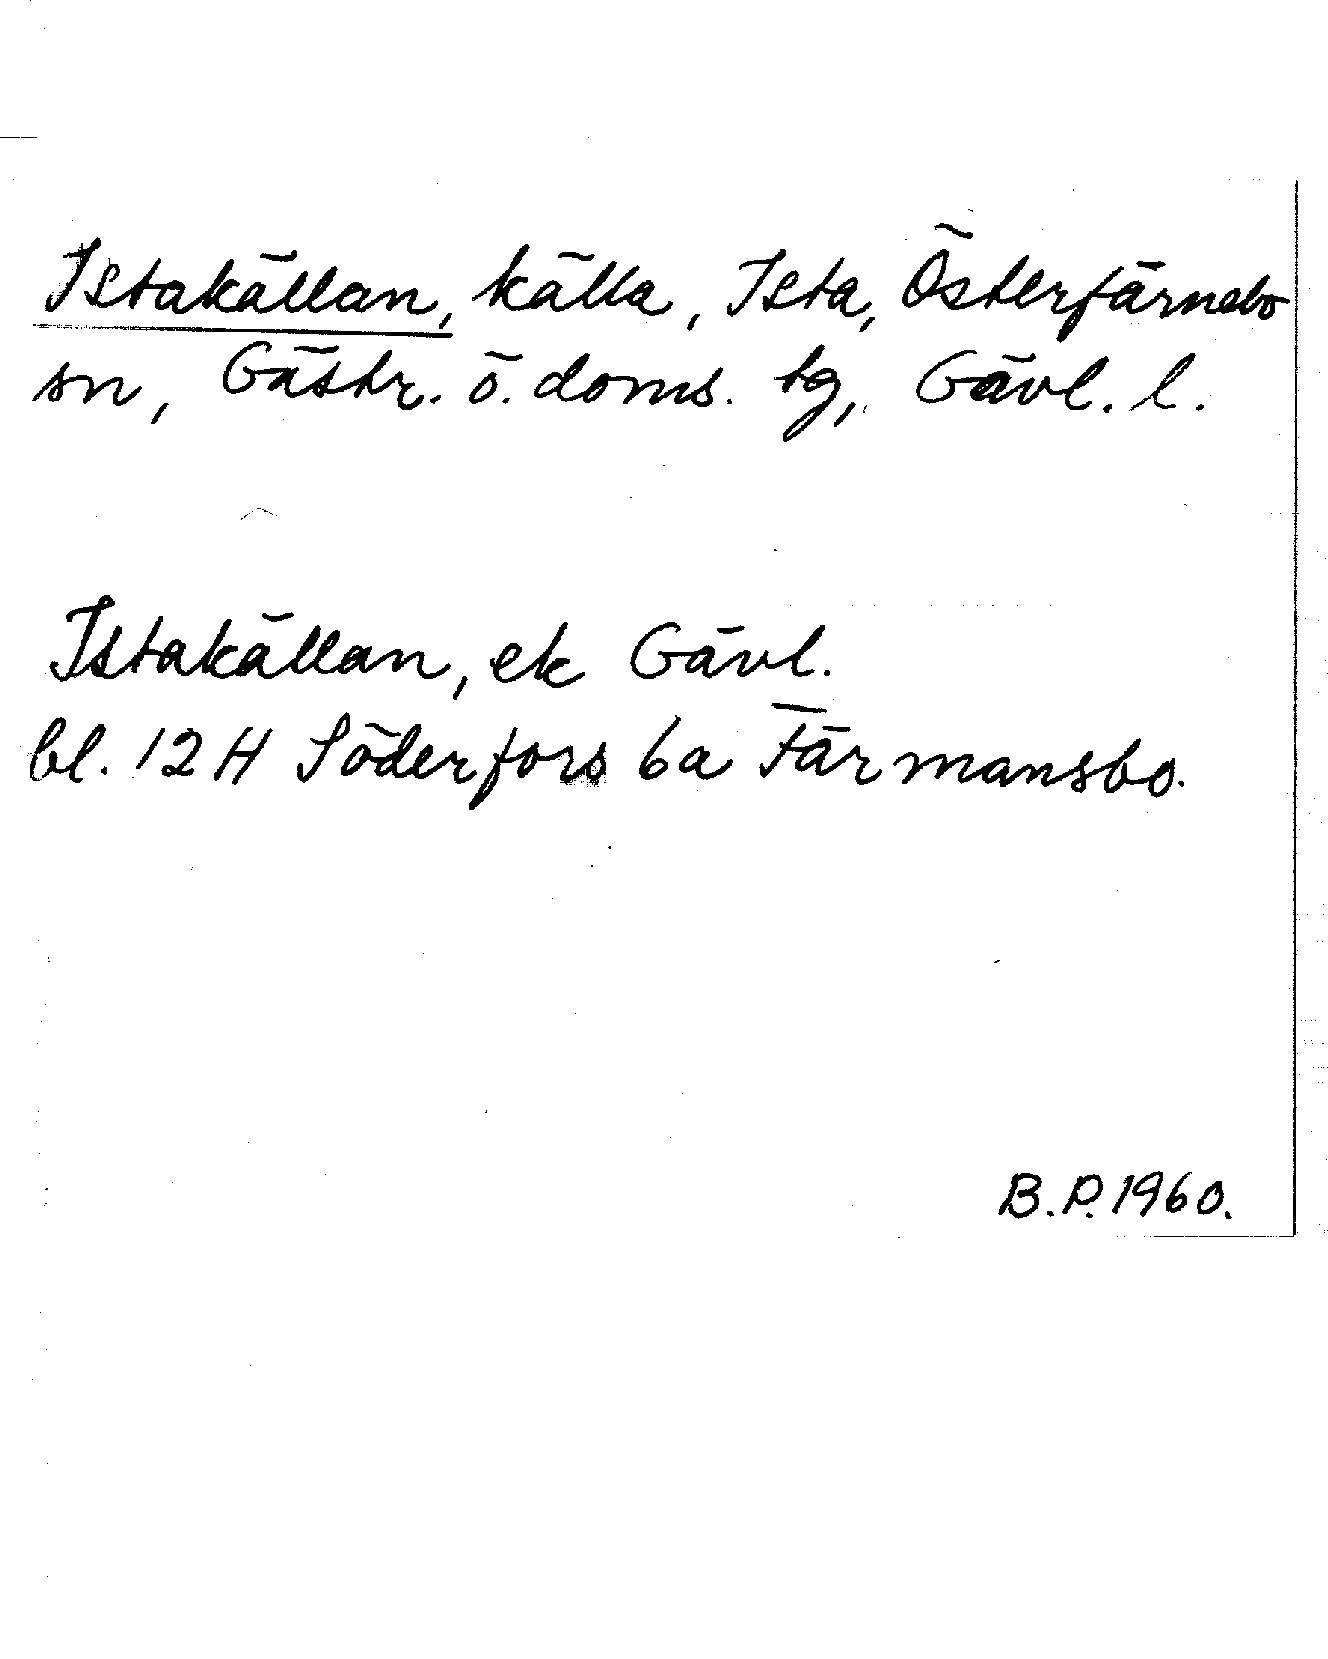 Istakällan, källa, Ista, Österfärnebo
sn, Gästr. ö. doms. tg, Gävl. l.
Istakällan, ek Gävl.
bl. 12 H Söderfors 6a Färmansbo.
B.P. 1960.